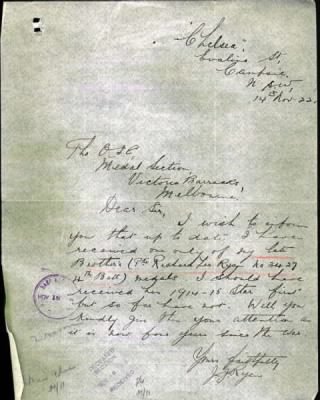 "Chelsea"
Evaline St,
Campsie.
N.S.W.
14th Nov. 22.
The O.I.C.
Medal Section,
Victoria Barracks,
Melbourne.
Dear Sir,
I wish to inform
you that up to date I have
received on only of my late
Brother (Pte Richard Ryan No 3427
4th Batt) medals. I should have
received his 1914-15 Star first
but so far have not. Will you
kindly give this your attention as
it is now four years since the war.
Yours faithfully
J Ryan
NOV 16